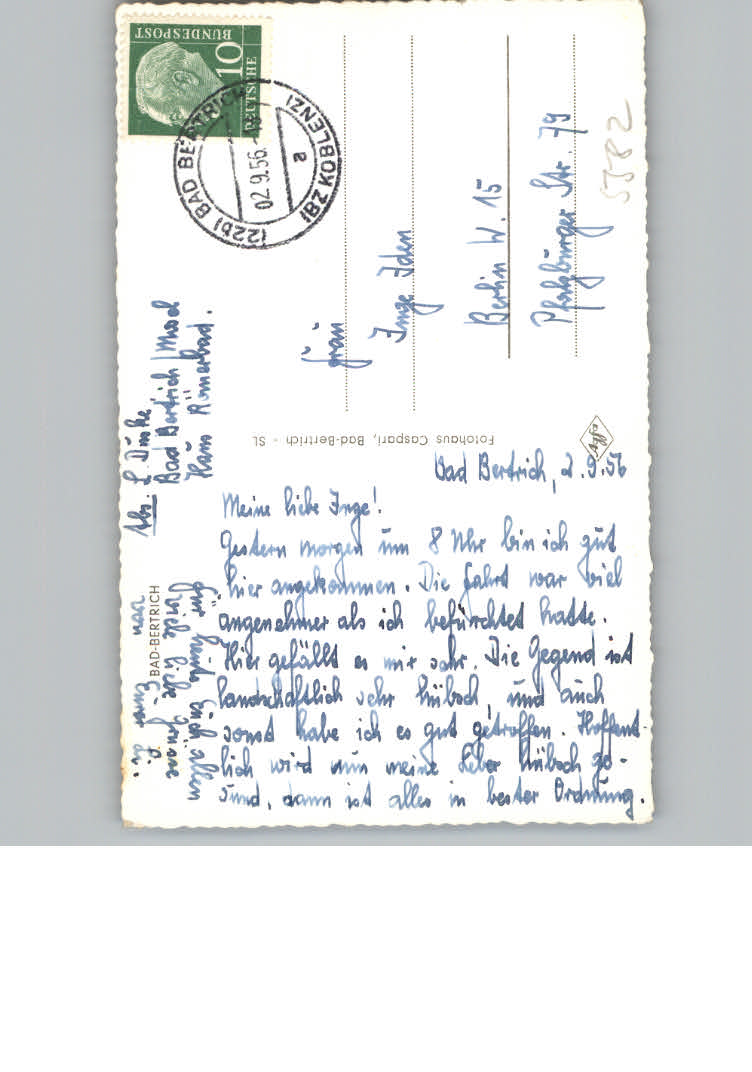 Bad Bertrich, 2.9.56
Meine liebe Inge!
Gestern morgen um 8 Uhr bin ich gut
hier angekommen. Die Fahrt war viel
angenehmer als ich befürchtet hatte.
Hier gefällt es mir sehr. Die Gegend ist
landschaftlich sehr hübsch, und auch
sonst habe ich es gut getroffen. Hoffent-
lich wird nun meine Leber hübsch ge-
sund, dann ist alles in bester Ordnung.
Für heute Euch allen
viele liebe Grüsse
von Eurer
BAD-BERTRICH
Abs. L.
Bad Bertrich/Mosel
Haus Römerbad.
Fotohaus Caspari, Bad-Bertrich - SL
Frau
Inge Iden
Berlin W. 15
Pfalzburger Str. 79
5582
DEUTSCHE
BUNDESPOST
10
(22b) BAD BERTRICH
(BZ KOBLENZ)
a
02.9.56.